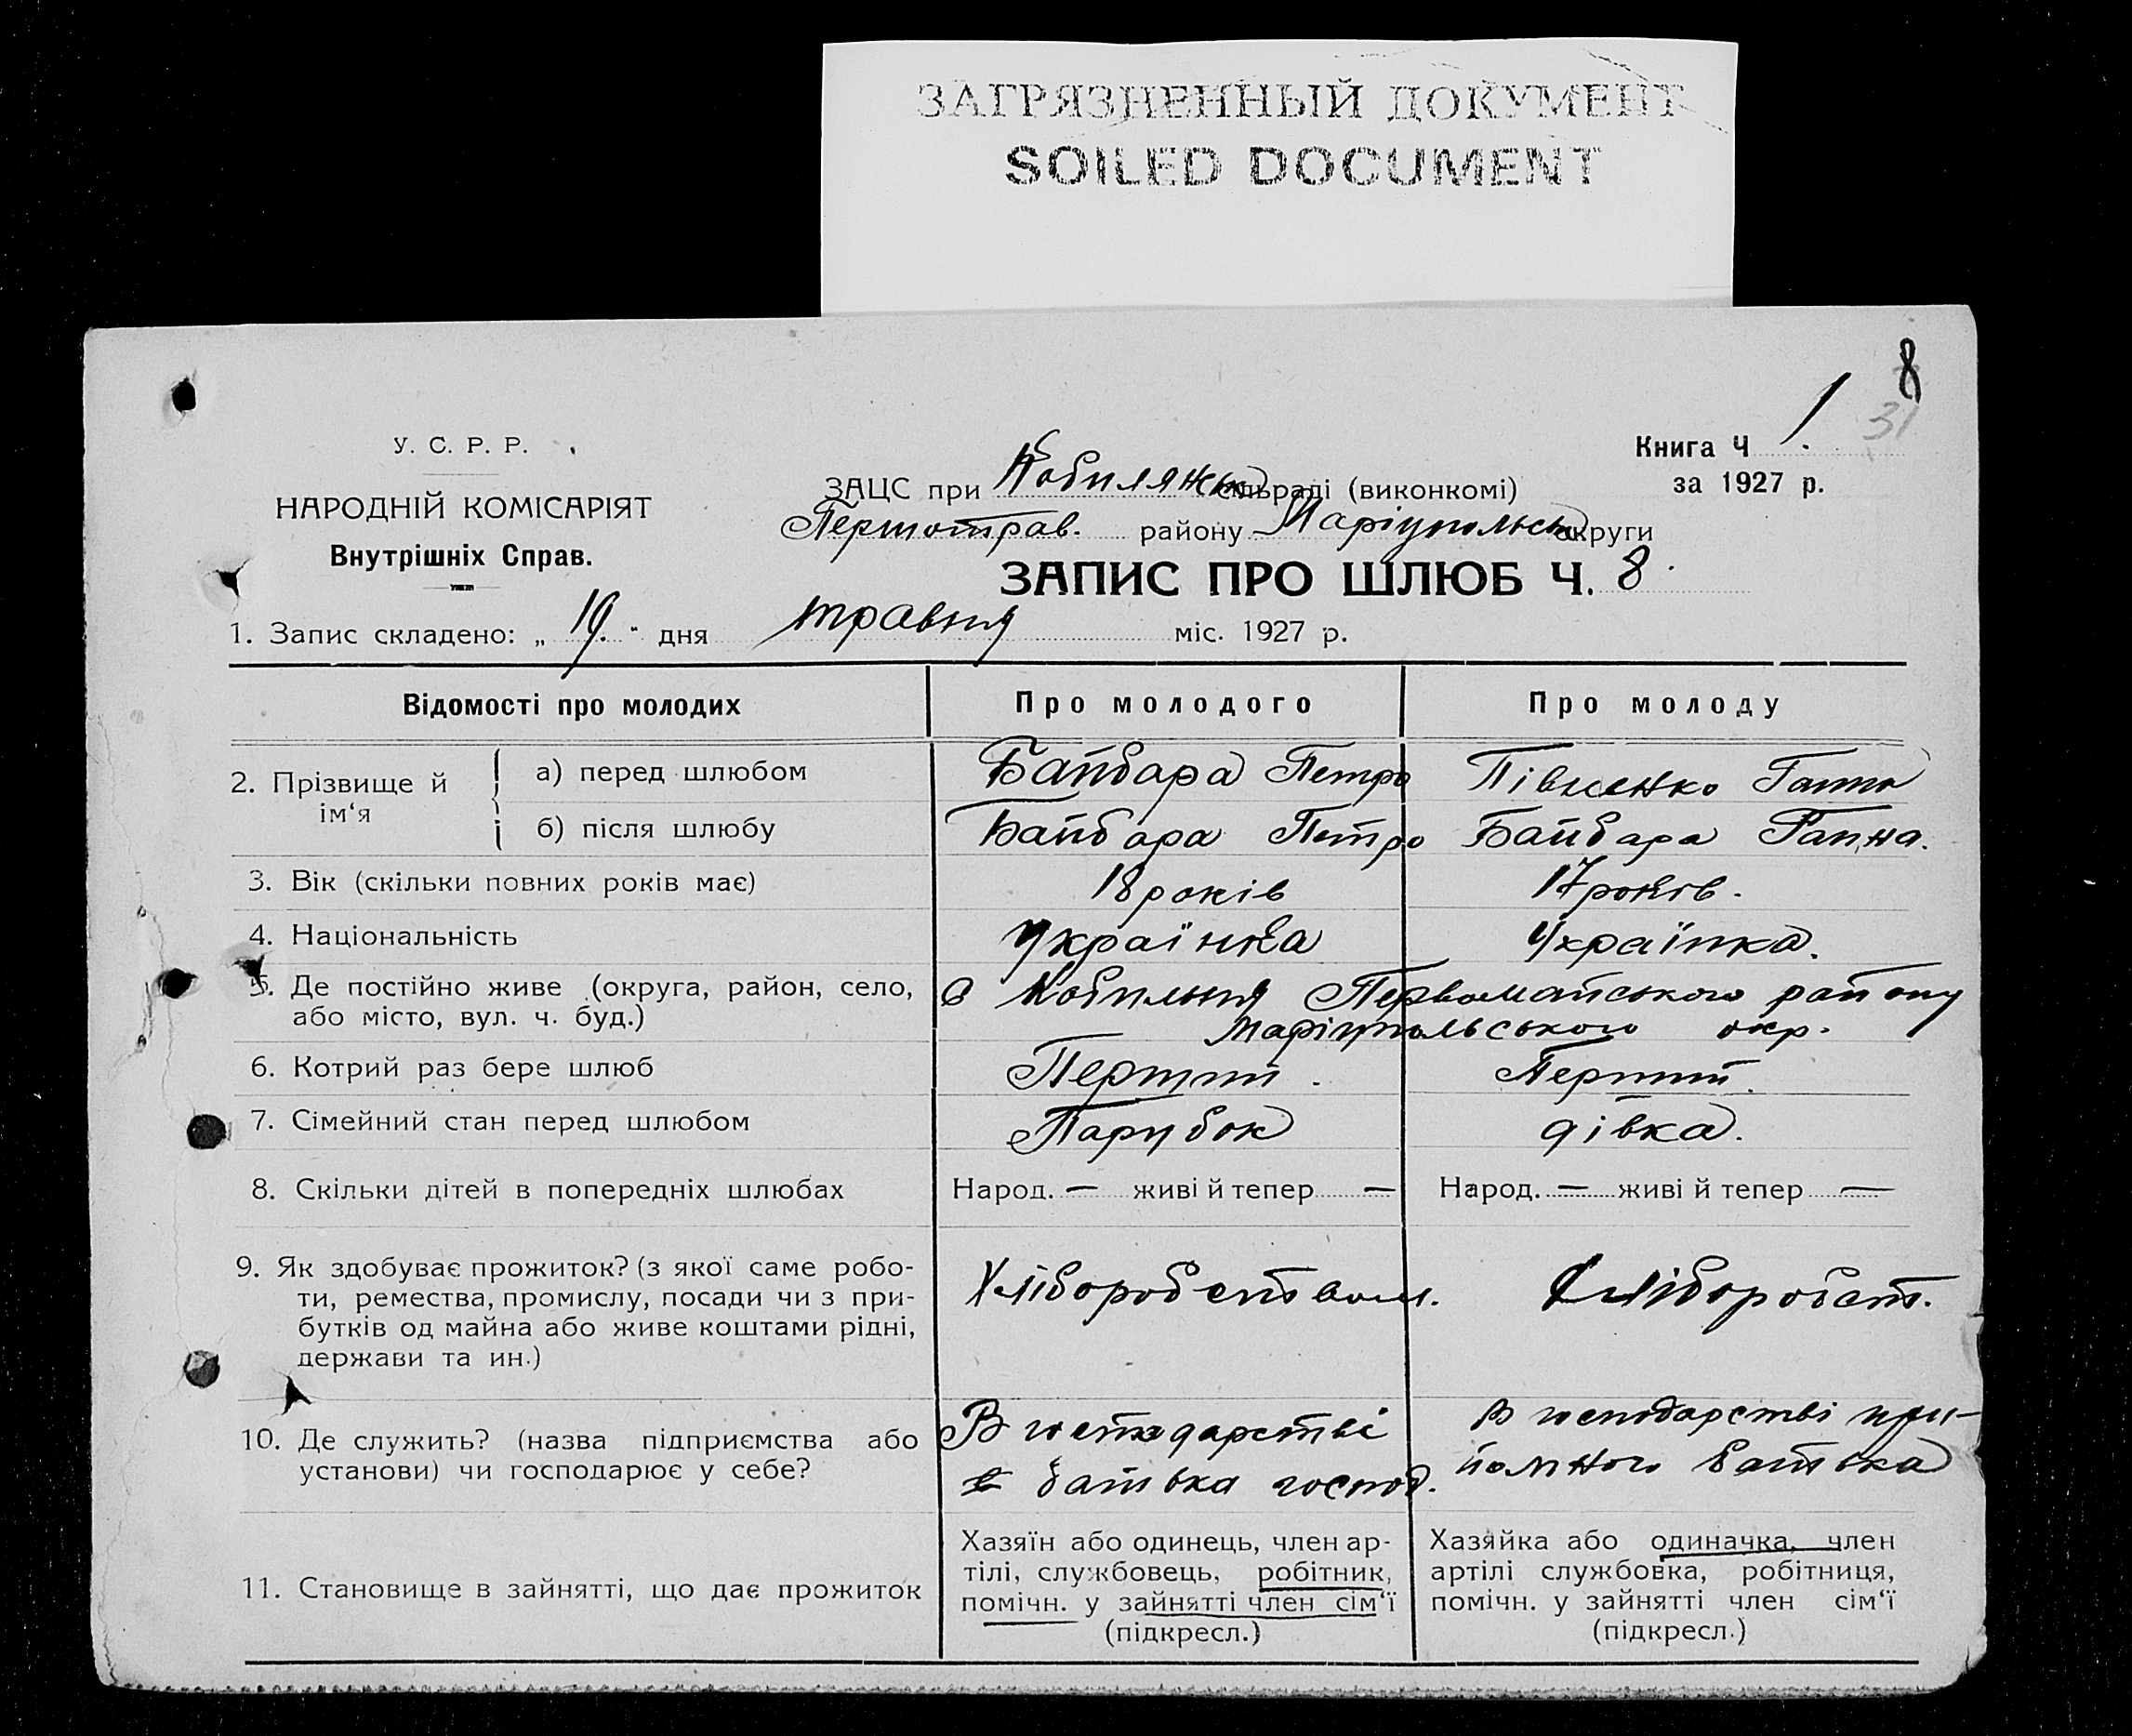 ЗАГРЯЗНЕННЫЙ ДОКУМЕНТ
SOILED DOCUMENT
8
31
У. С. Р. Р.
НАРОДНІЙ КОМІСАРІЯТ
Внутрішніх Справ.
Книга Ч 1.
за 1927 р.
ЗАЦС при Кобиляжн сільраді (виконкомі)
Першотрав. району Маріупольськ округи
ЗАПИС ПРО ШЛЮБ Ч. 8.
1. Запис складено: „ 19 " дня травня міс. 1927 р.
Відомості про молодих Про молодого Про молоду
2. Прізвище й ім‘я
а) перед шлюбом Байбара Петро Півненко Ганна
б) після шлюбу Байбара Петро Байбара Ганна.
3. Вік (скільки повних років має) 18 років 17 років.
4. Національність Українка Українка.
5. Де постійно живе (округа, район, село, або місто, вул. ч. буд.) с Кобильня Первомайського району
Маріупольського окр.
6. Котрий раз бере шлюб Перший. Перший.
7. Сімейний стан перед шлюбом Парубок дівка.
8. Скільки дітей в попередніх шлюбах Народ. — живі й тепер — Народ. — живі й тепер —
9. Як здобуває прожиток? (з якої саме робо-
ти, ремества, промислу, посади чи з при-
бутків од майна або живе коштами рідні,
держави та ин.)
Хліборобством. Хліборобст.
10. Де служить? (назва підприємства або
установи) чи господарює у себе?
В господарстві
батька господ.
В господарстві при-
йомного батька
11. Становище в зайнятті, що дає прожиток
Хазяїн або одинець, член ар-
тілі, службовець, робітник,
помічн. у зайнятті член сім‘ї
(підкресл.)
Хазяйка або одиначка, член
артілі службовка, робітниця,
помічн. у зайнятті член сім‘ї
(підкресл.)